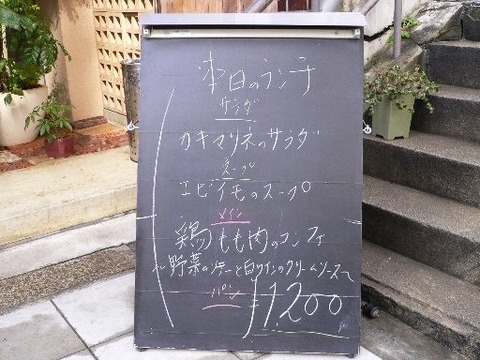 本日のランチ
サラダ
カキマリネのサラダ
スープ
エビイモのスープ
メイン
鶏もも肉のコンフィ
〜野菜のソテーと白ワインのクリームソース〜
パン
¥1,200